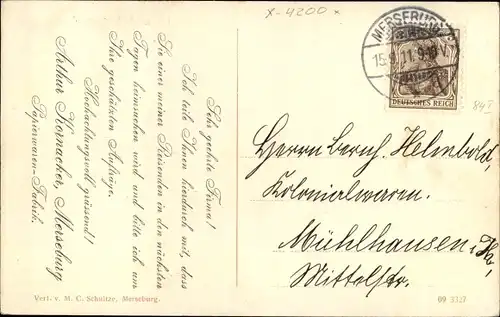 X-4200x
MERSEBURG
15.9.11.9-10V.
DEUTSCHES REICH
Sehr geehrte Firma!
Ich teile Ihnen hierdurch mit, dass
Sie einer meiner Reisenden in den nächsten
Tagen heimsuchen wird und bitte ich um
Ihre geschätzten Aufträge.
Hochachtungsvoll grüssend!
Arthur Kornacker, Merseburg
Papierwaren-Fabrik.
Herrn Bernh. Helmbold,
Kolonialwaren.
Mühlhausen i. Th,
Mittelstr.
Verl. v. M. C. Schultze, Merseburg.
09 3327